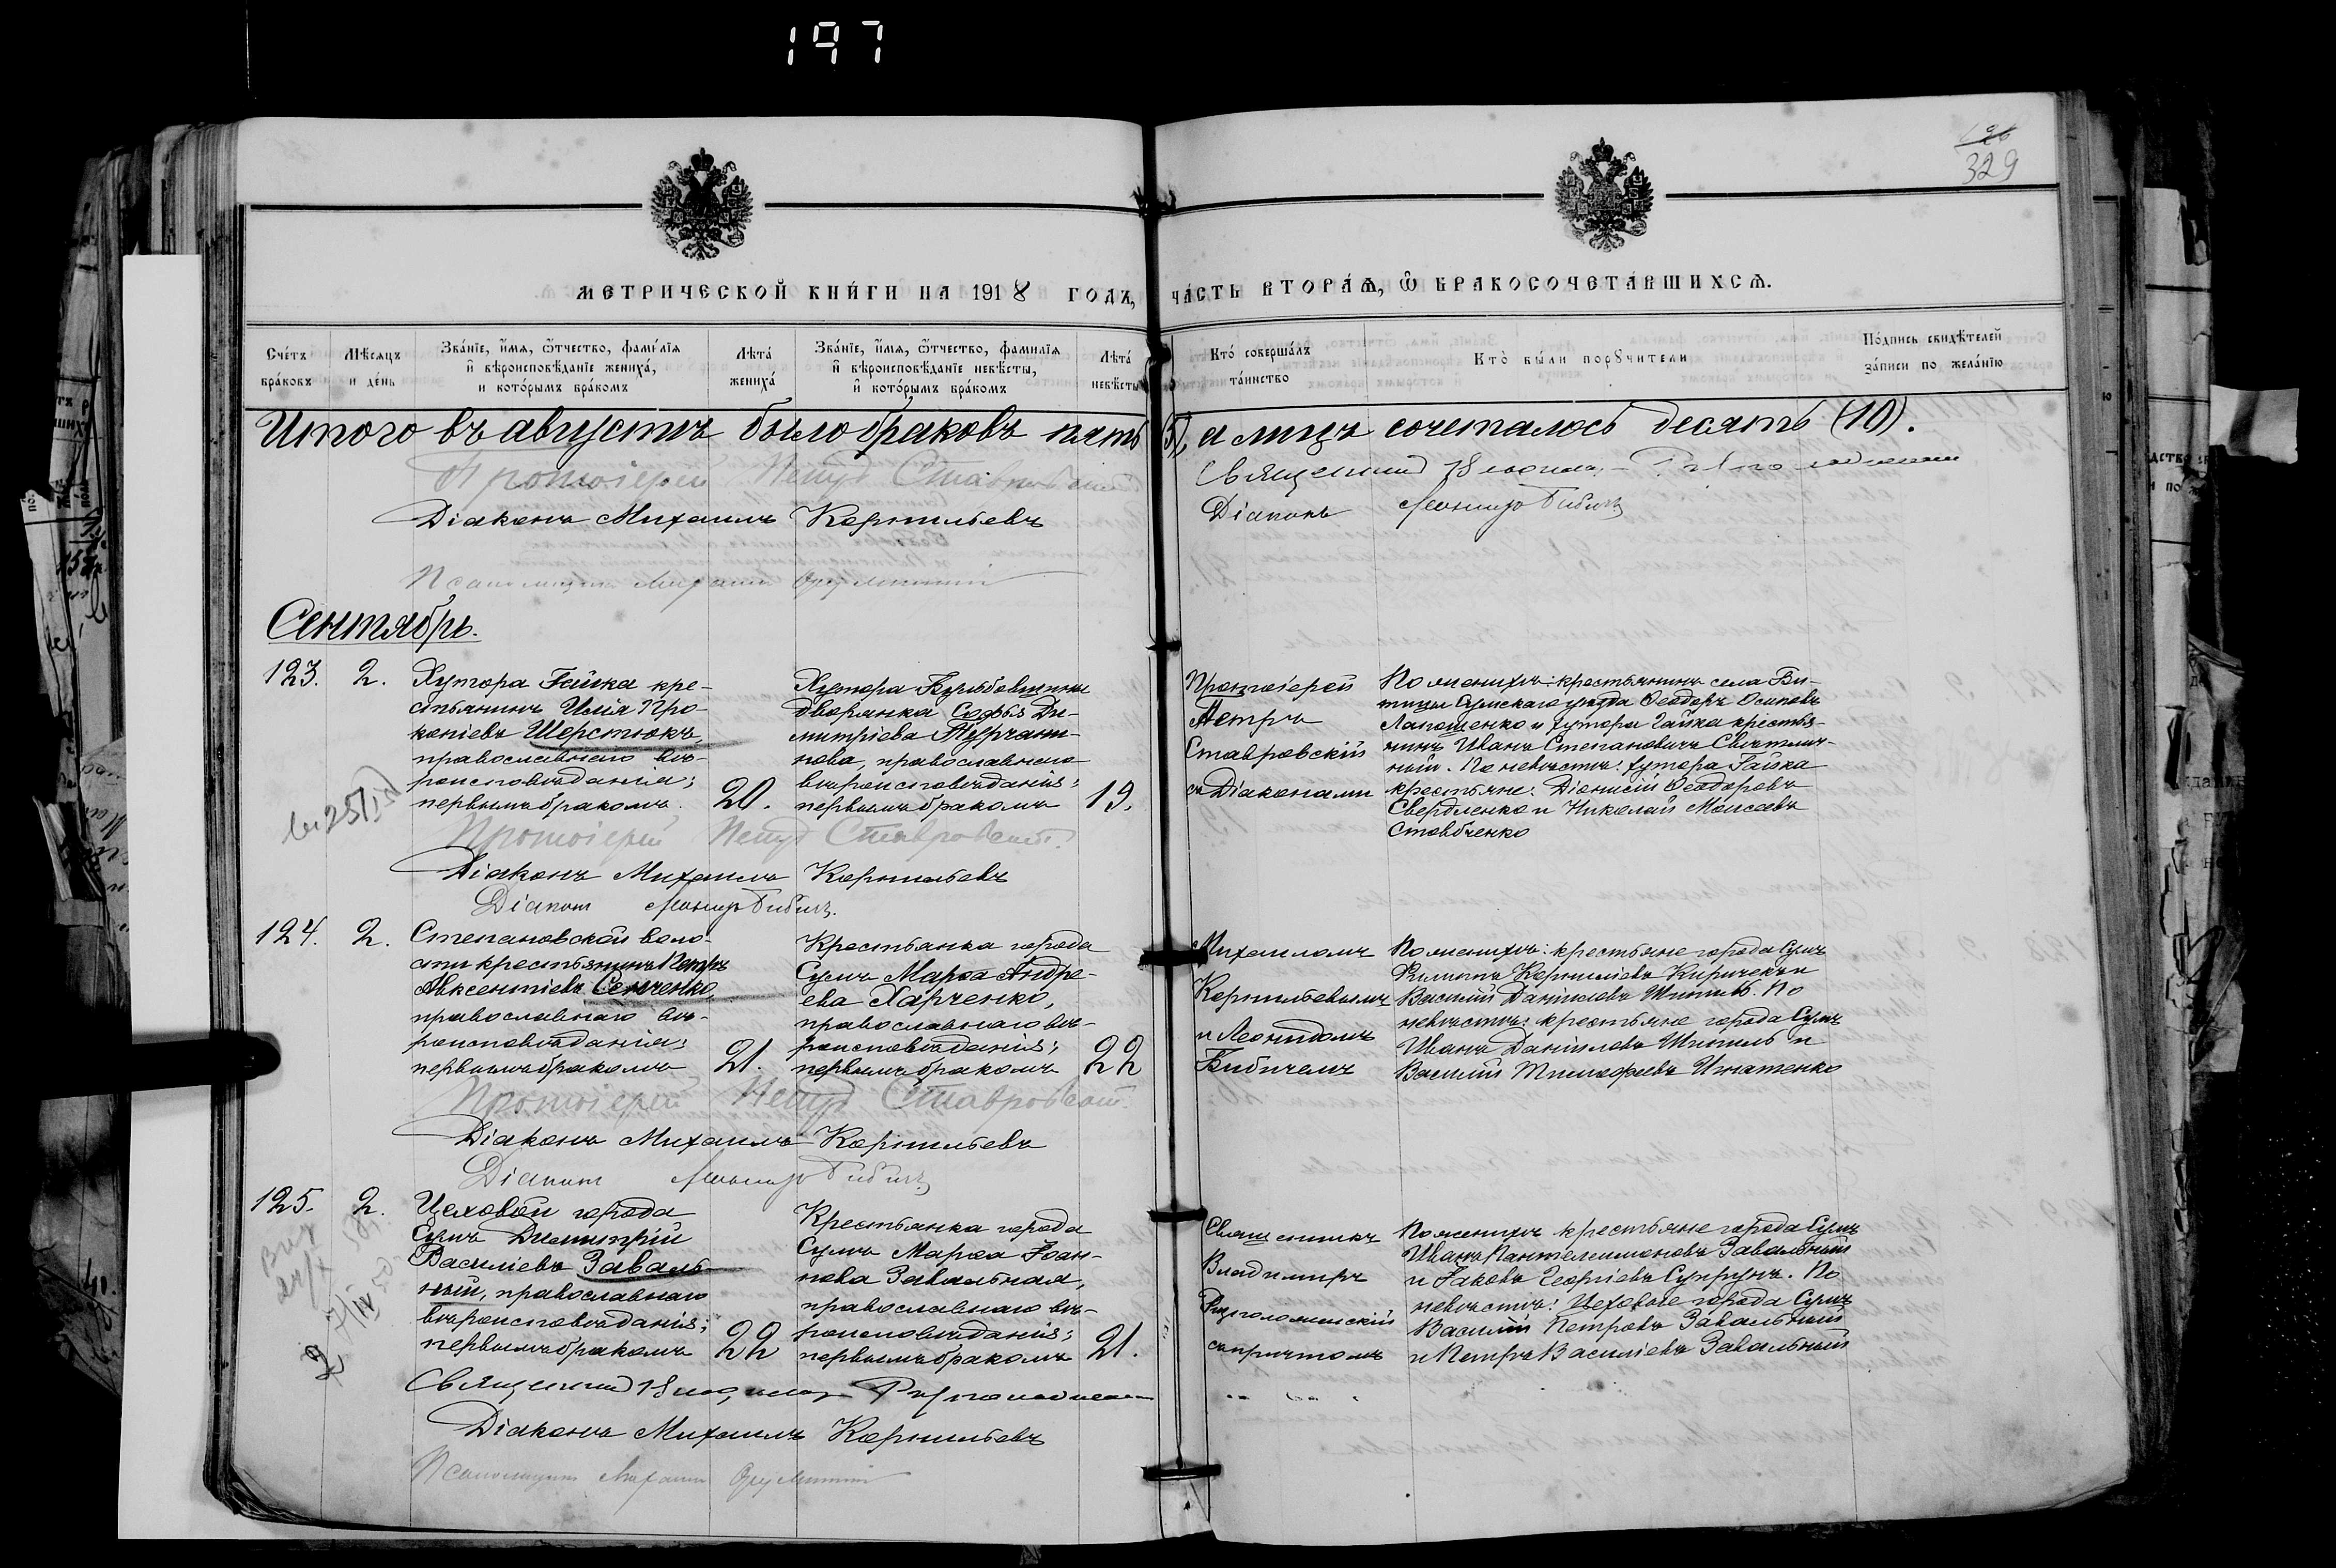 197
126
329
МЕТРИЧЕСКОЙ КНИ́ГИ НА 1918 ГОДЪ, ЧА́СТЬ ВТОРА́Ѧ, Ѽ БРАКОСОЧЕТА́ВШИХСѦ.
Сче́тъ бра́ковъ
Мѣ́сѧцъ и де́нь
Зва́нїе, и҆́мѧ, ѻ҆́тчество, фами́лїѧ и҆ вѣроисповѣ́данїе жениха́, и кото́рымъ бра́комъ
Лѣта́ жениха́
Зва́нїе, и҆́мѧ, ѻ҆́тчество, фами́лїѧ и҆ вѣроисповѣ́данїе невѣ́сты, и҆ кото́рымъ бра́комъ
Лѣта́ невѣ́сты
Кто́ соверша́лъ та́инство
Кто̀ бы́ли порꙋчи́тели
По́дпись свидѣ́телей за́писи по жела́нїю
Итого въ августѣ было браковъ пять (5), а лицъ сочеталось десять (10).
Протоіерей Петръ Ставровскій
Діаконъ Михаилъ Корнильевъ
Псаломщикъ Михаилъ
Священникъ Владиміръ
Діаконъ Леонидъ Бибичъ
Сентябрь.
123. 2.
Хутора Гайка кре-
стьянинъ Илія Про-
копіевъ Шерстюкъ,
православнаго вѣ-
роисповѣданія;
первымъ бракомъ.
20.
Хутора
дворянка Софья Ди-
митріева
нова, православнаго
вѣроисповѣданія;
первымъ бракомъ
19.
Протоіерей
Петръ
Ставровскій
съ Діаконами
По женихѣ: крестьянинъ села Би-
тицы Сумскаго уѣзда Ѳеодоръ Осиповъ
Лапошенко и хутора Гайка крестья-
нинъ Иванъ Степановичъ Свѣтлич-
ный. По невѣстѣ: хутора Гайка
крестьяне: Діонисій Ѳеодоровъ
Свердленко и Николай Моисеевъ
Стовбченко
Протоіерей Петръ Ставровскій.
Діаконъ Михаилъ Корнильевъ
Діаконъ Леонидъ Бибичъ.
124. 2.
Степановской воло-
сти крестьянинъ Петръ
Авксентіевъ Сенченко,
православнаго вѣ-
роисповѣданія;
первымъ бракомъ
21.
Крестьянка города
Сумъ Марѳа Андре-
ева Харченко,
православнаго вѣ-
роисповѣданія;
первымъ бракомъ
22
Михаиломъ
Корнильевымъ
и Леонидомъ
Бибичемъ
По женихѣ: крестьяне города Сумъ
Филиппъ Корниліевъ Киричекъ и
Василій Даніиловъ Шпиль. По
невѣстѣ: крестьяне города Сумъ
Иванъ Даніиловъ Шпиль и
Василій Тимоѳеевъ Игнатенко
Протоіерей Петръ Ставровскій
Діаконъ Михаилъ Корнильевъ
Діаконъ Леонидъ Бибичъ
125. 2.
Цеховой города
Сумъ Димитрій
Василіевъ Заваль-
ный, православнаго
вѣроисповѣданія;
первымъ бракомъ
22
Крестьянка города
Сумъ Марѳа Іоан-
нова Завальная,
православнаго вѣ-
роисповѣданія;
первымъ бракомъ
21.
Священникъ
Владиміръ
съ причтомъ
По женихѣ крестьяне города Сумъ
Иванъ Пантелеимоновъ Завальный
и Іаковъ Георгіевъ Супрунъ. По
невѣстѣ: Цеховые города Сумъ
Василій Петровъ Завальный
и Петръ Василіевъ Завальный
Священникъ Владиміръ
Діаконъ Михаилъ Корнильевъ
Псаломщикъ Михаилъ